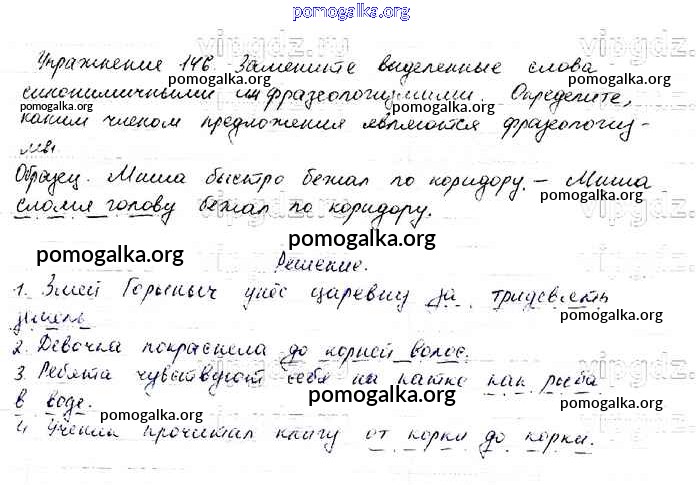 pomogalka.org
vipgdz.ru
Упражнение 146. Замените выделенные слова
pomogalka.org
pomogalka.org
синонимичными им фразеологизмами. Определите,
pomogalka.org
pomogalka.org
каким членом предложения являются фразеологиз-
мы.
Образец. Миша быстро бежал по коридору. – Миша
pomogalka.org
сломя голову бежал по коридору.
pomogalka.org
pomogalka.org
Решение.
1. Змей Горыныч унёс царевну за тридевять
pomogalka.org
земель
2. Девочка покраснела до корней волос.
3. Ребята чувствуют себя на катке как рыба
pomogalka.org
pomogalka.org
в воде.
pomogalka.org
4. Ученик прочитал книгу от корки до корки.